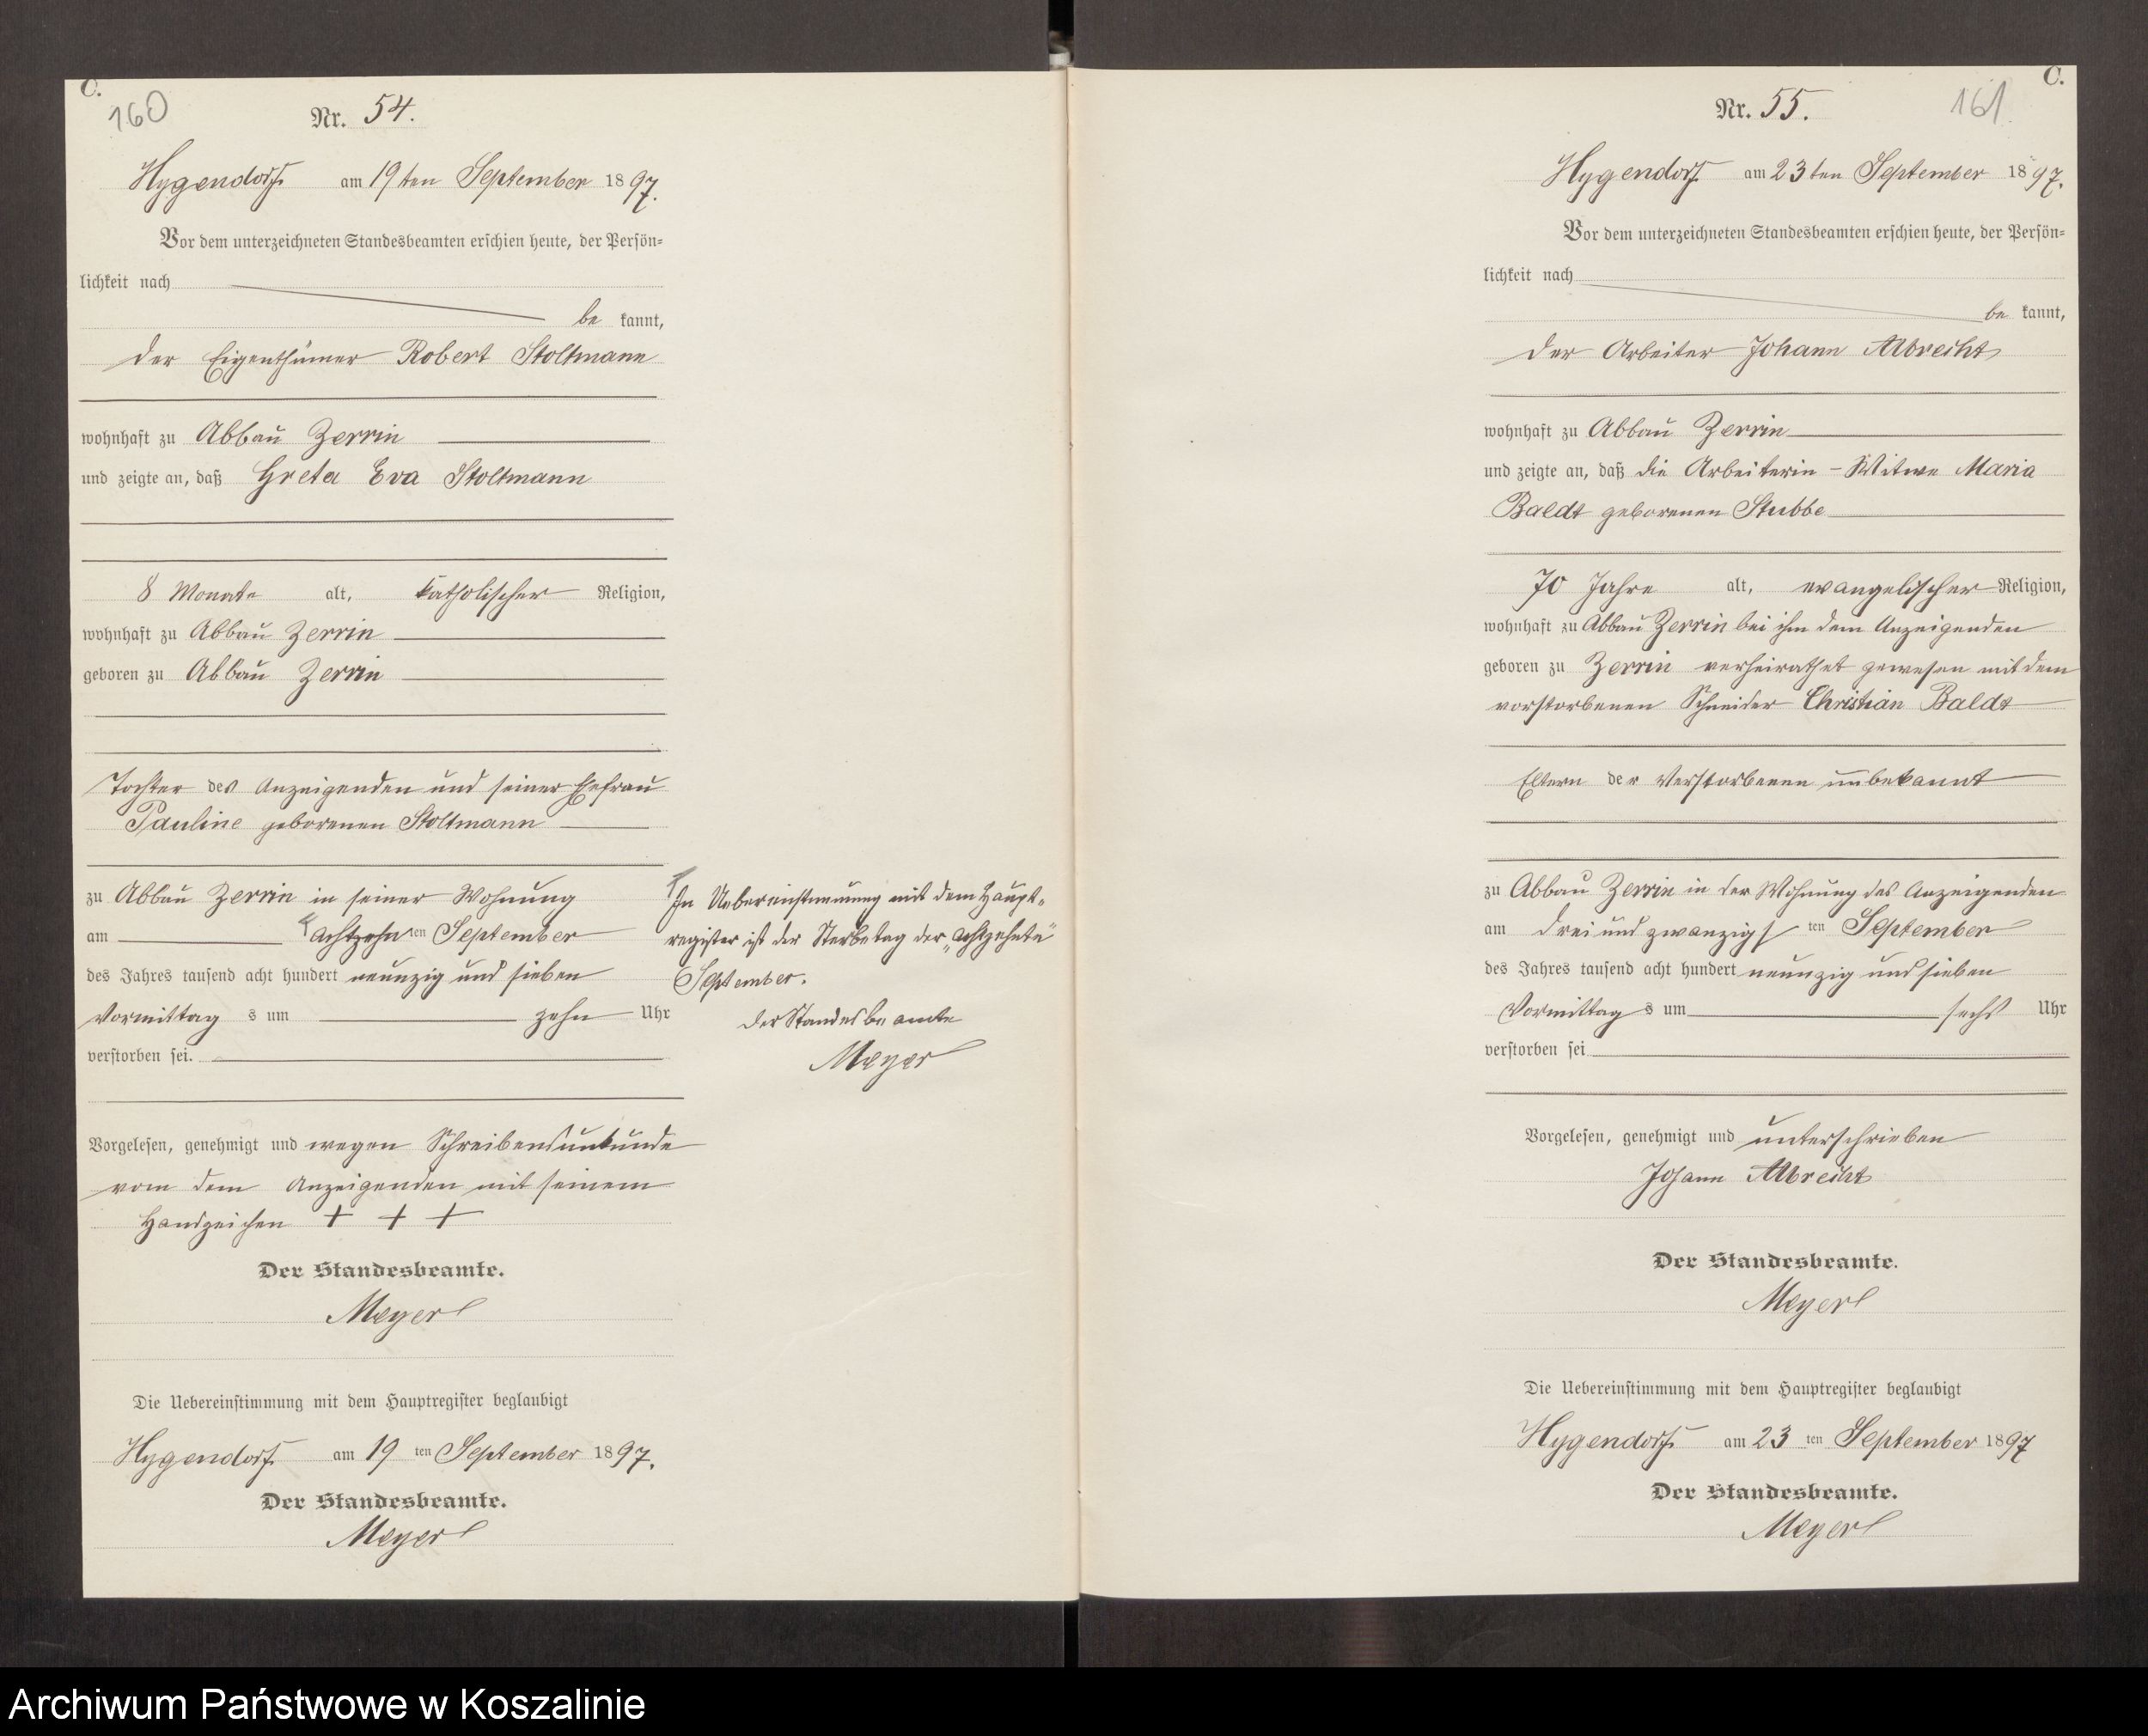 C.
160
Nr. 54.
Hygendorf am 19ten September 1897.
Vor dem unterzeichneten Standesbeamten erschien heute, der Persön-
lichkeit nach
be kannt,
der Eigenthümer Robert Stoltmann
wohnhaft zu Abbau Zerrin
und zeigte an, daß Greta Eva Stoltmann
8 Monate alt, katholischer Religion,
wohnhaft zu Abbau Zerrin
geboren zu Abbau Zerrin
Tochter des Anzeigenden und seiner Ehefrau
Pauline geborenen Stoltmann
zu Abbau Zerrin in seiner Wohnung
am achtzehn ten September
des Jahres tausend acht hundert neunzig und sieben
Vormittag s um zehn Uhr
verstorben sei.
Vorgelesen, genehmigt und wegen Schreibensunkunde
vom dem Anzeigenden mit seinem
Handzeichen + + +
Der Standesbeamte.
Meyer
Die Uebereinstimmung mit dem Hauptregister beglaubigt
Hygendorf am 19 ten September 1897.
Der Standesbeamte.
Meyer
In Uebereinstimmung mit dem Haupt-
register ist der Sterbetag der „achtzehnte"
September.
Der Standesbeamte
Meyer
C.
161
Nr. 55.
Hygendorf am 23ten September 1897.
Vor dem unterzeichneten Standesbeamten erschien heute, der Persön-
lichkeit nach
be kannt,
der Arbeiter Johann Albrecht
wohnhaft zu Abbau Zerrin
und zeigte an, daß die Arbeiterin-Witwe Maria
Baldt geborenen Stubbe
70 Jahre alt, evangelischer Religion,
wohnhaft zu Abbau Zerrin bei ihm dem Anzeigenden
geboren zu Zerrin verheirathet gewesen mit dem
verstorbenen Schneider Christian Baldt
Eltern der Verstorbenen unbekannt
zu Abbau Zerrin in der Wohnung des Anzeigenden
am dreiundzwanzigs ten September
des Jahres tausend acht hundert neunzig und sieben
Vormittag s um sechs Uhr
verstorben sei
Vorgelesen, genehmigt und unterschrieben
Johann Albrecht
Der Standesbeamte.
Meyer
Die Uebereinstimmung mit dem Hauptregister beglaubigt
Hygendorf am 23 ten September 1897
Der Standesbeamte.
Meyer
Archiwum Państwowe w Koszalinie